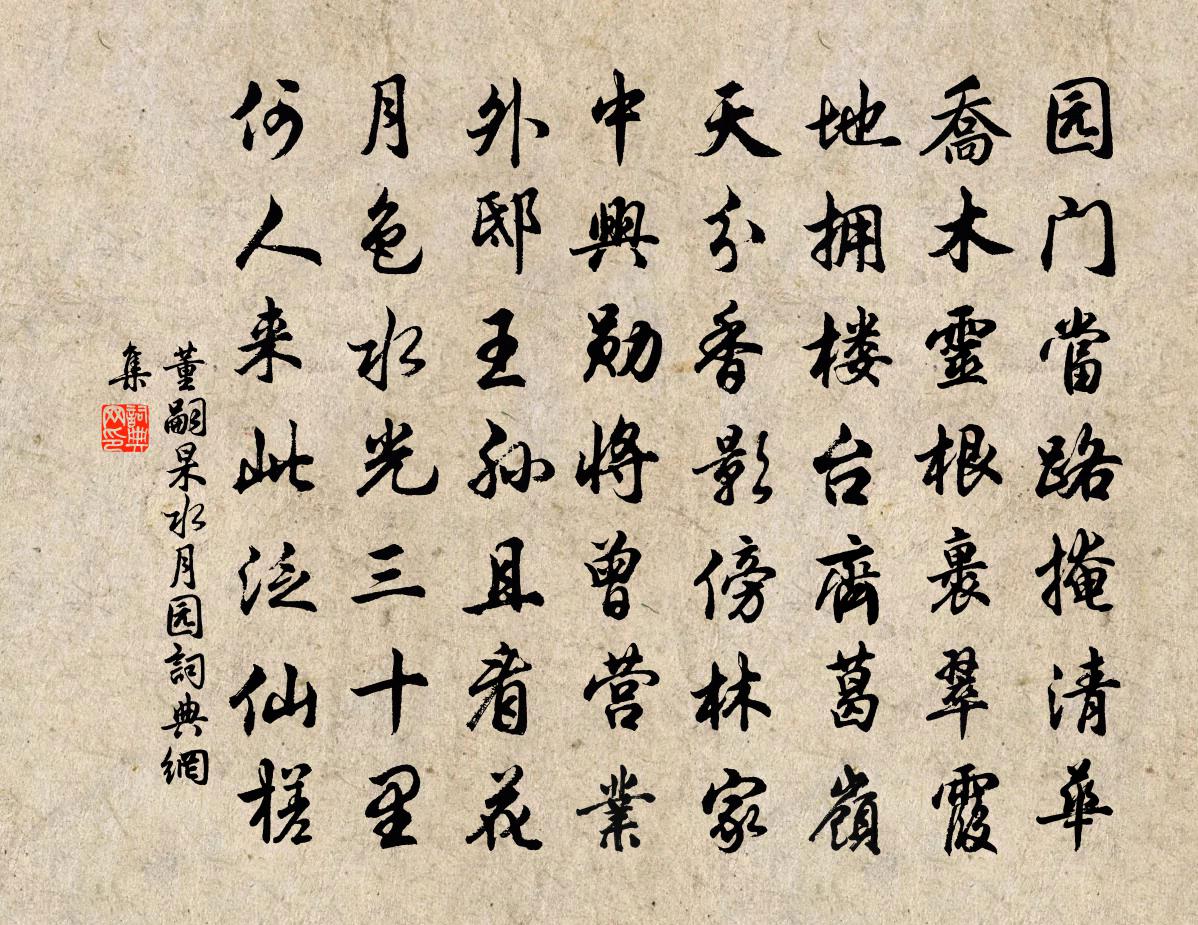 园门當路掩清華
喬木靈根裹翠霞
地拥楼台齊葛嶺
天分香影傍林家
中興勋将曾营業
外邸王孙且看花
月色水光三十里
何人来此泛仙槎
董嗣杲水月园詞典網
集
詞典
网印